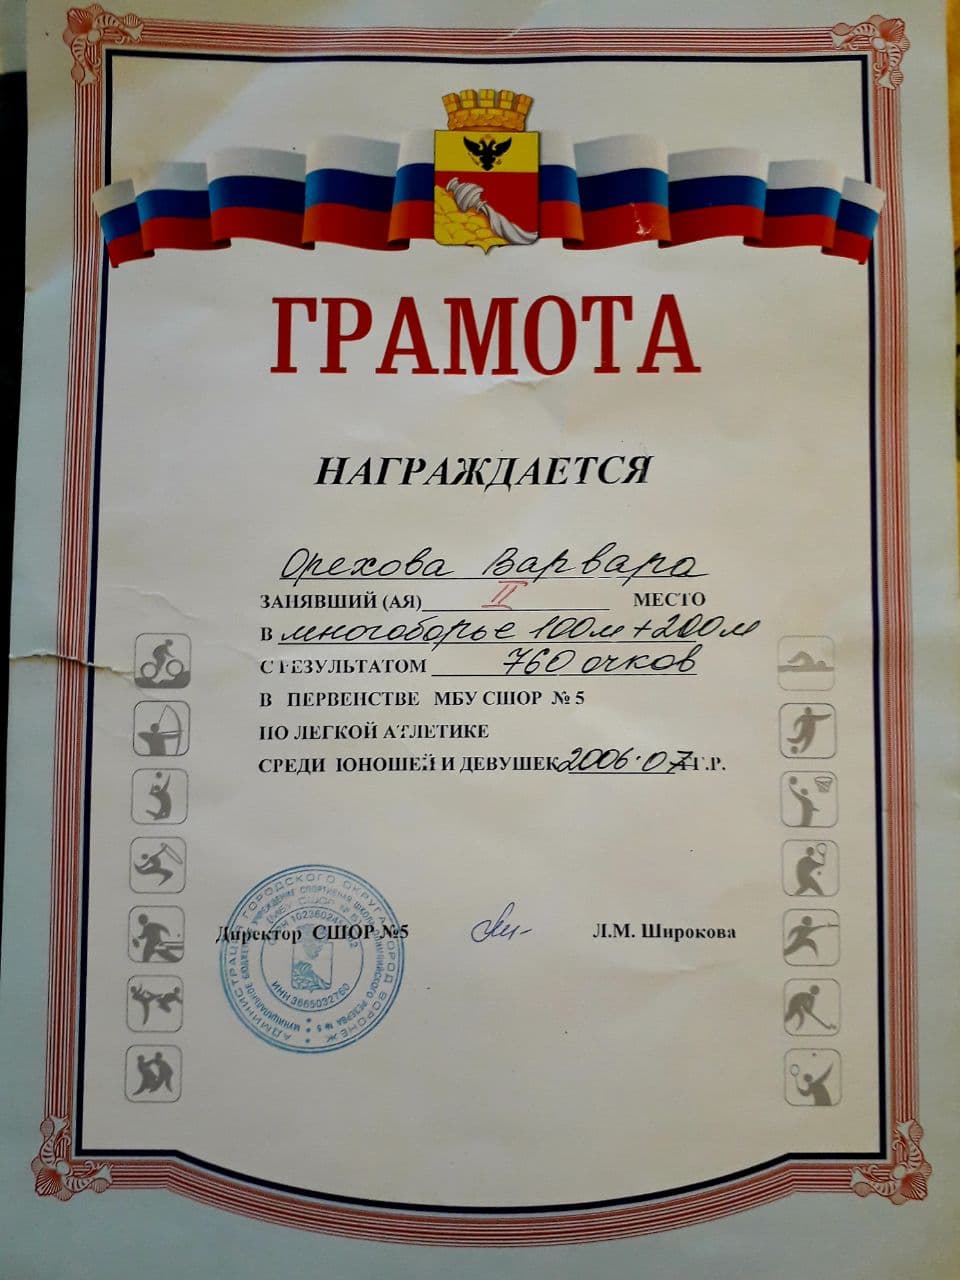 ГРАМОТА
НАГРАЖДАЕТСЯ
Орехова Варвара
ЗАНЯВШИЙ (АЯ) II МЕСТО
В многоборье 100м + 200м
С РЕЗУЛЬТАТОМ 760 очков
В ПЕРВЕНСТВЕ МБУ СШОР № 5
ПО ЛЕГКОЙ АТЛЕТИКЕ
СРЕДИ ЮНОШЕЙ И ДЕВУШЕК 2006-07 Г.Р.
Директор СШОР №5 Л.М. Широкова
АДМИНИСТРАЦИЯ ГОРОДСКОГО ОКРУГА ГОРОД ВОРОНЕЖ
МУНИЦИПАЛЬНОЕ БЮДЖЕТНОЕ УЧРЕЖДЕНИЕ СПОРТИВНАЯ ШКОЛА ОЛИМПИЙСКОГО РЕЗЕРВА № 5
(МБУ СШОР № 5)
ИНН 3665032760